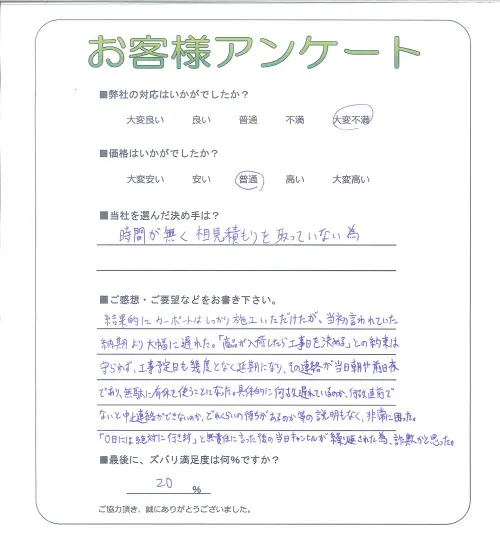 お客様アンケート
■弊社の対応はいかがでしたか？
大変良い 良い 普通 不満 大変不満
■価格はいかがでしたか？
大変安い 安い 普通 高い 大変高い
■当社を選んだ決め手は？
時間が無く相見積もりを取っていない為
■ご感想・ご要望などをお書き下さい。
結果的にカーポートはしっかり施工いただけたが、当初言われていた
納期より大幅に遅れた。「商品が入荷したら工事日を決める」との約束は
守られず、工事予定日も幾度となく延期になり、その連絡が当日朝や前日夜
であり、無駄に有休を使うことになった。具体的に何故遅れているのか、何故直前で
ないと中止連絡ができないのか、どれくらいの待ちがあるのか等の説明もなく、非常に困った。
「○日には絶対に行きます」と無責任に言った後の当日キャンセルが繰り返された為、詐欺かと思った。
■最後に、ズバリ満足度は何%ですか？
20 %
ご協力頂き、誠にありがとうございました。